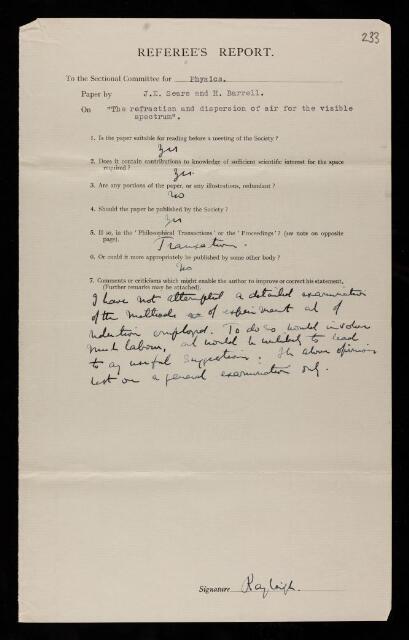 233
REFEREE'S REPORT.
To the Sectional Committee for Physics.
Paper by J.E. Sears and H. Barrell.
On "The refraction and dispersion of air for the visible
spectrum".
1. Is the paper suitable for reading before a meeting of the Society?
Yes
2. Does it contain contributions to knowledge of sufficient scientific interest for the space
required?
Yes.
3. Are any portions of the paper, or any illustrations, redundant?
No
4. Should the paper be published by the Society?
Yes
5. If so, in the 'Philosophical Transactions' or the 'Proceedings'? (see note on opposite
page).
Transactions.
6. Or could it more appropriately be published by some other body?
No
7. Comments or criticisms which might enable the author to improve or correct his statement.
(Further remarks may be attached).
I have not attempted a detailed examination
of the methods of experiment and of
reduction employed. To do so would involve
much labour, and would be unlikely to lead
to any useful suggestions. The above opinions
rest on a general examination only.
Signature Rayleigh.